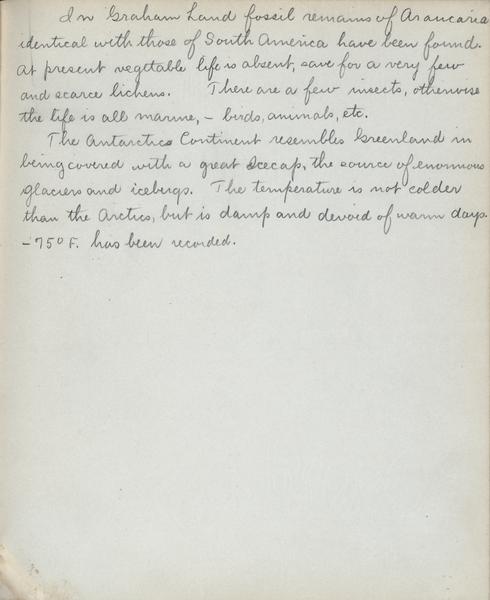 In Graham Land fossil remains of Araucaria
identical with those of South America have been found.
At present vegetable life is absent, save for a very few
and scarce lichens. There are a few insects, otherwise
the life is all marine, - birds, animals, etc.
The Antarctic Continent resembles Greenland in
being covered with a great Icecap, the source of enormous
glaciers and icebergs. The temperature is not colder
than the Arctics, but is damp and devoid of warm days.
-75° F. has been recorded.